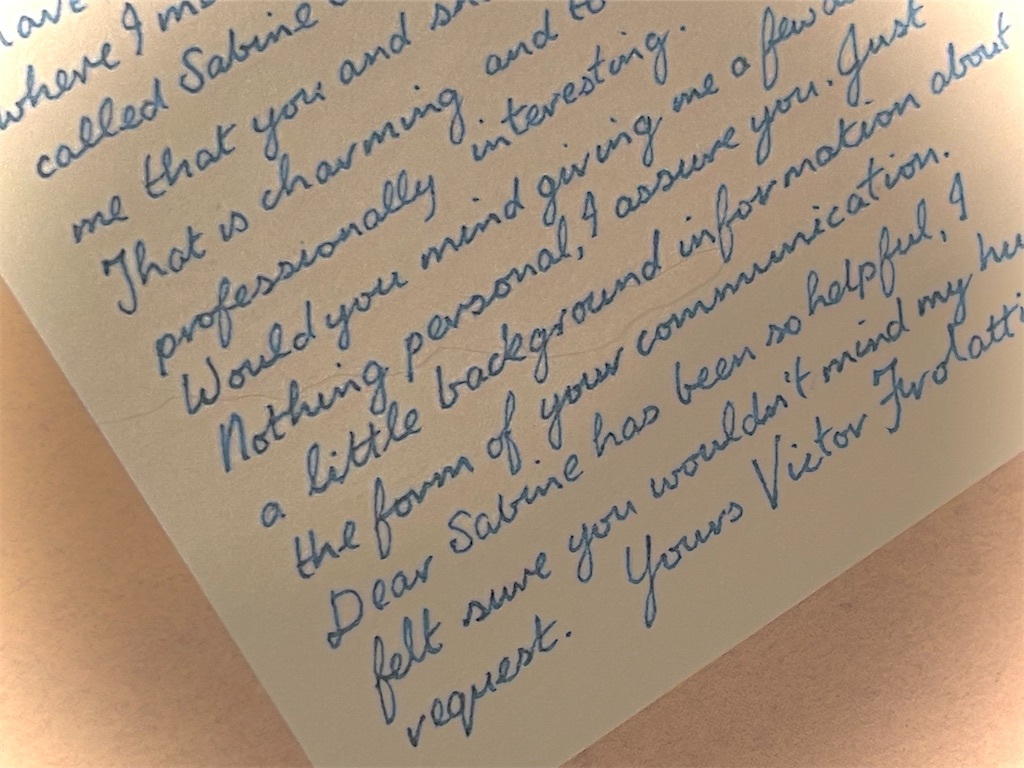 where I
called Sabine
me that you and
That is charming and to
professionally interesting.
Would you mind giving me a few
Nothing personal, I assure you. Just
a little background information about
the form of your communication.
Dear Sabine has been so helpful, I
felt sure you wouldn't mind my
request. Yours Victor